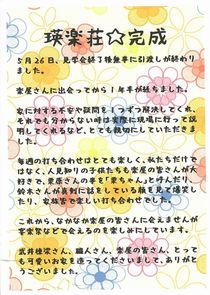 瑛楽荘☆完成
5月26日、見学会終了後無事に引渡しが終わり
ました。
楽屋さんに出会ってから1年半が経ちました。
家に対する不安や疑問を1つずつ解決してくれ、
それでも分からない時は実際に現場に行って説
明してくれるなど、とても親切にしていただきま
した。
毎週の打ち合わせはとても楽しく、私たちだけで
はなく、人見知りの子供たちも楽屋の皆さんが大
好きで、栗原さんの事を「栗ちゃん」と呼んだり、
鈴木さんが真剣に話をしている顔を見て爆笑した
り、家族皆で楽しい打ち合わせでした。
これから、なかなか楽屋の皆さんに会えませんが
家楽祭などで会えるのを楽しみにしています。
武井棟梁さん、職人さん、楽屋の皆さん、とって
も可愛いお家を造ってくださいまして、ありがと
うございました。